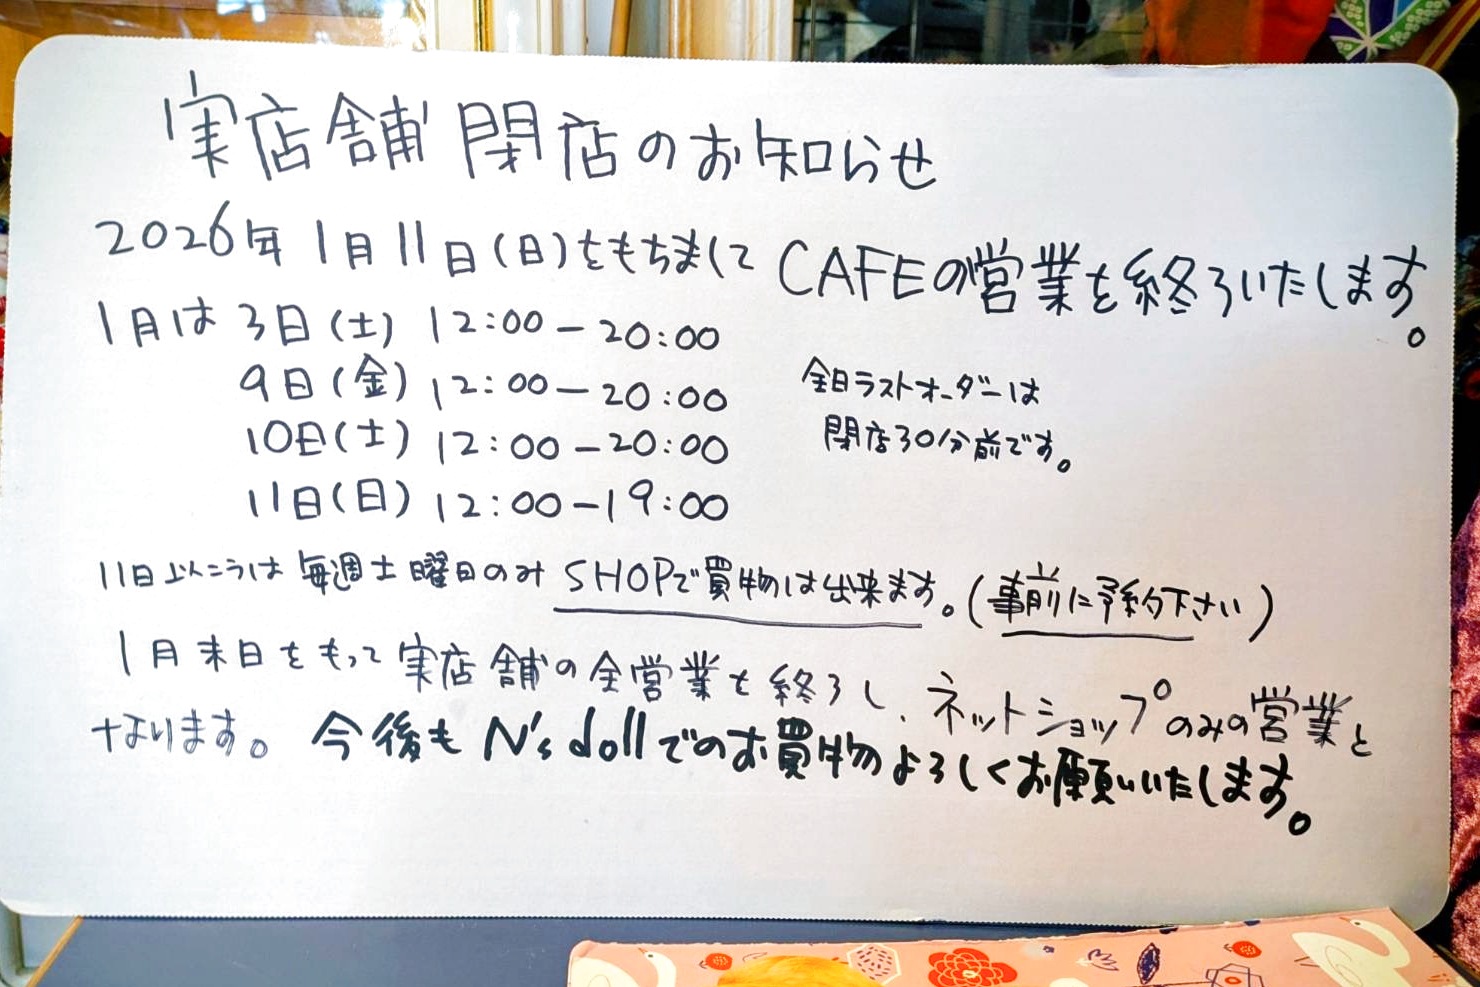 実店舗閉店のお知らせ
2026年1月11日(日)をもちましてCAFEの営業を終了いたします。
1月は 3日(土) 12:00－20:00
9日(金) 12:00－20:00
10日(土) 12:00－20:00
11日(日) 12:00－19:00
全日ラストオーダーは
閉店30分前です。
11日以こうは毎週土曜日のみSHOPで買物は出来ます。(事前に予約下さい)
1月末日をもって実店舗の全営業を終了し、ネットショップのみの営業と
なります。今後もN's dollでのお買物よろしくお願いいたします。